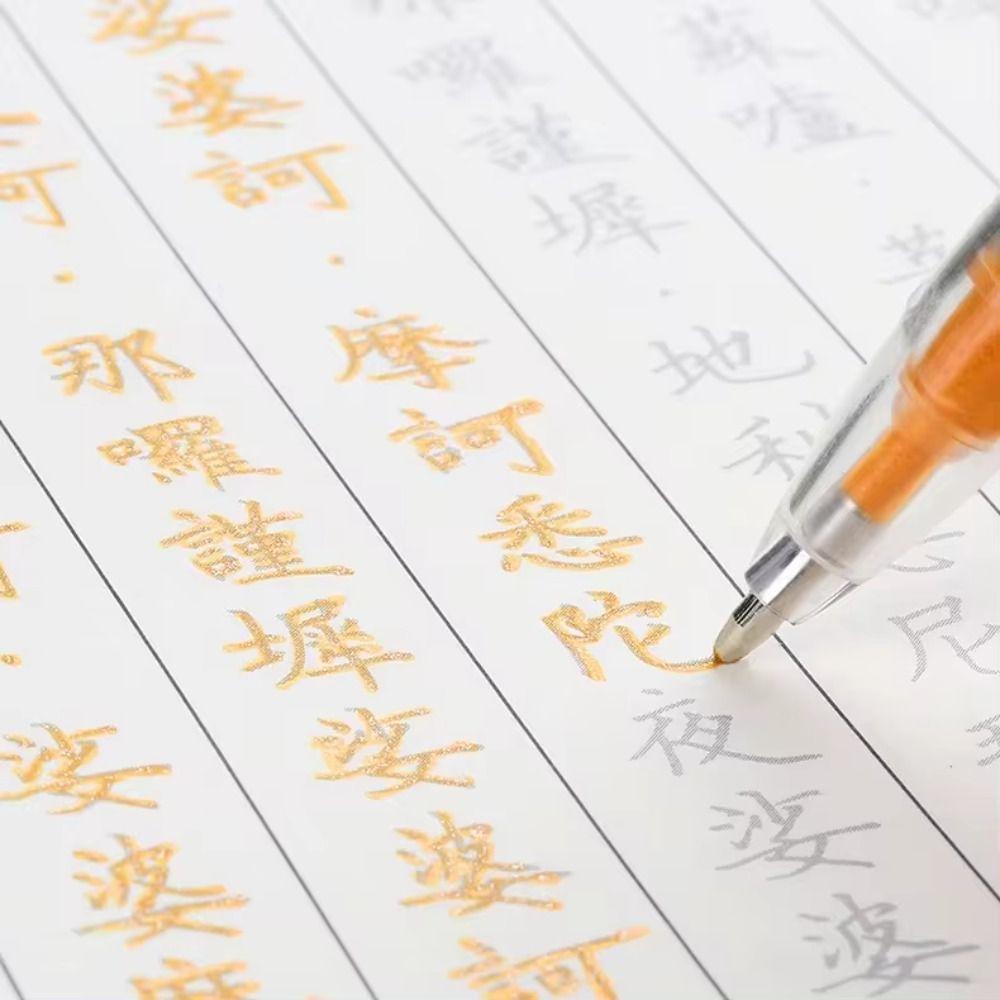 蘇嚧・菩
囉謹墀・地利尼
娑婆訶・摩訶悉陀夜娑婆
訶・那囉謹墀娑婆訶
・娑婆摩